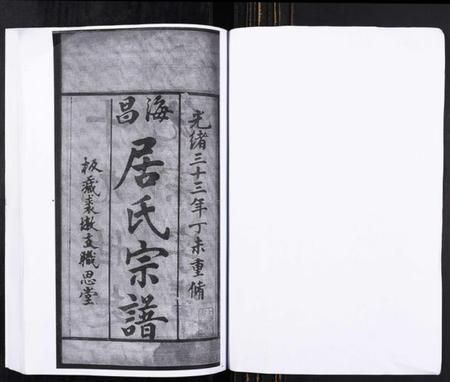 光緒三十三年丁未重脩
海昌
居氏宗譜
板藏裘墩支職思堂